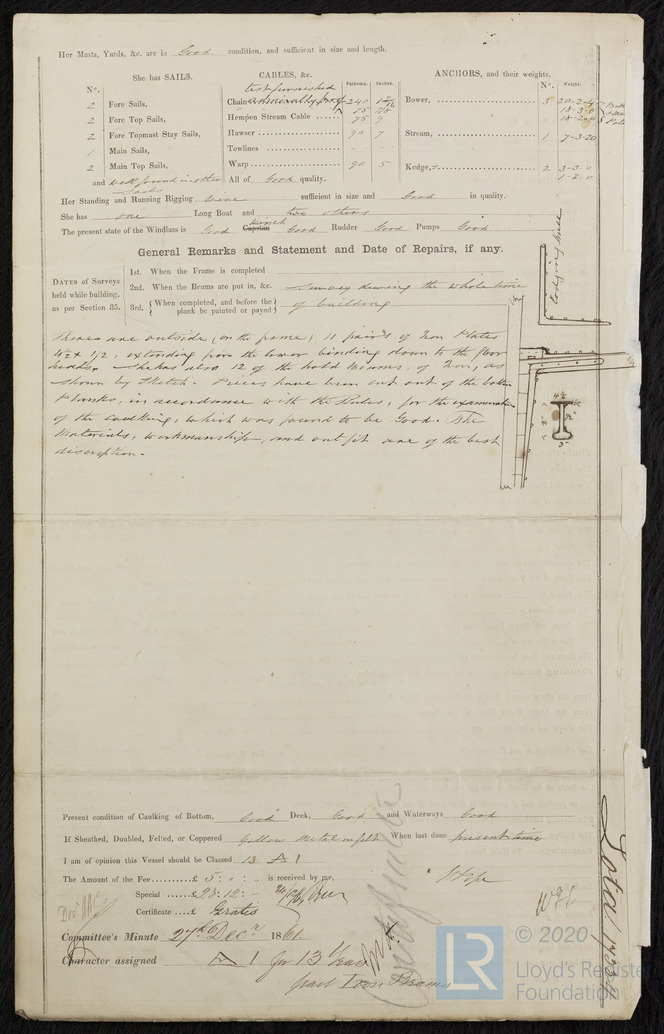 Her Masts, Yards, &c. are in Good condition, and sufficient in size and length.
She has SAILS.
CABLES, &c.
Fathoms. Inches.
ANCHORS, and their weights.
No. Weight.
No.
2 Fore Sails,
2 Fore Top Sails,
2 Fore Topmast Stay Sails,
1 Main Sails,
2 Main Top Sails,
and well found in other sails
test furnished
Chain admiralty proof 240
Hempen Stream Cable 75 9
Hawser 90 7
Towlines
Warp 90 5
All of Good quality.
Bower, 3 20-2-
18-2-0
Stream, 1 7-3-20
Kedge,s 2 3-3-0
1-2-0
Her Standing and Running Rigging were sufficient in size and Good in quality.
She has one Long Boat and two others
The present state of the Windlass is Good Capstan Winch Good Rudder Good Pumps Good
General Remarks and Statement and Date of Repairs, if any.
DATES of Surveys held while building, as per Section 35.
1st. When the Frame is completed
2nd. When the Beams are put in, &c. Survey during the whole time
3rd. {When completed, and before the plank be painted or payed} of building
lodging knee
There are outside, (on the frame) 11 pairs of Iron Plates
4½ x ½, extending from the lower binding down to the floor
heads. She has also 12 of the hold Beams, of Iron, as
shown by Sketch. Pieces have been cut out of the bottom
Planks, in accordance with the Rules, for the examination
of the caulking, which was found to be Good. The
Materials, workmanship, and outfit are of the best
description.
Present condition of Caulking of Bottom, Good Deck, Good and Waterways Good
If Sheathed, Doubled, Felted, or Coppered Yellow Metal on felt When last done present time
I am of opinion this Vessel should be Classed 13 A 1
The Amount of the Fee £ 5 : " : " is received by me,
Special £23 : 12 : -
Certificate £ Gratis
Committee's Minute 27th Decr 1861
Character assigned A 1 for 13 Years
part Iron Beams
© 2020
LR
Lloyd's Register
Foundation